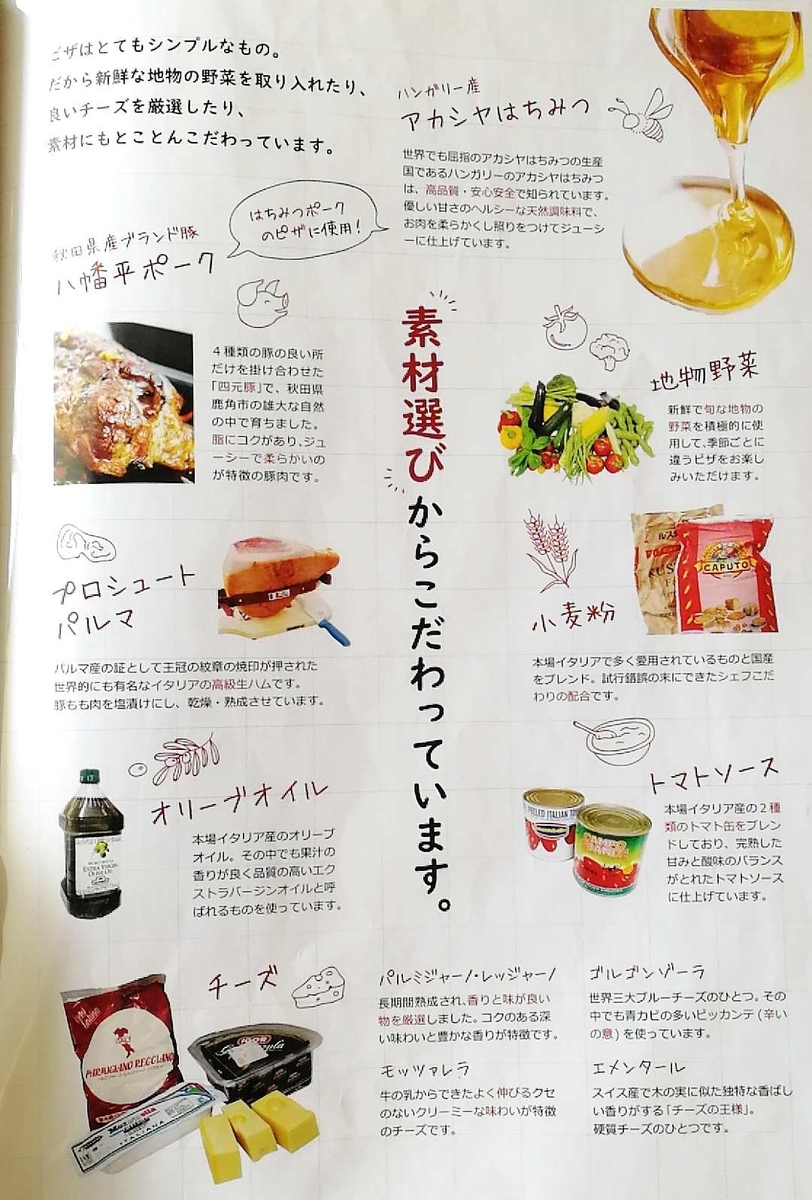 ピザはとてもシンプルなもの。
だから新鮮な地物の野菜を取り入れたり、
良いチーズを厳選したり、
素材にもとことんこだわっています。
ハンガリー産
アカシヤはちみつ
世界でも屈指のアカシヤはちみつの生産
国であるハンガリーのアカシヤはちみつ
は、高品質・安心安全で知られています。
優しい甘さのヘルシーな天然調味料で、
お肉を柔らかくし照りをつけてジューシ
ーに仕上げています。
はちみつポーク
のピザに使用!
秋田県産ブランド豚
八幡平ポーク
4種類の豚の良い所
だけを掛け合わせた
「四元豚」で、秋田県
鹿角市の雄大な自然
の中で育ちました。
脂にコクがあり、ジュ
ーシーで柔らかいの
が特徴の豚肉です。
素材選びからこだわっています。
地物野菜
新鮮で旬な地物の
野菜を積極的に使
用して、季節ごとに
違うピザをお楽し
みいただけます。
プロシュート
パルマ
パルマ産の証として王冠の紋章の焼印が押された
世界的にも有名なイタリアの高級生ハムです。
豚もも肉を塩漬けにし、乾燥・熟成させています。
CAPUTO
小麦粉
本場イタリアで多く愛用されているものと国産
をブレンド。試行錯誤の末にできたシェフこだ
わりの配合です。
オリーブオイル
本場イタリア産のオリーブ
オイル。その中でも果汁の
香りが良く品質の高いエク
ストラバージンオイルと呼
ばれるものを使っています。
EXTRA VIRGIN
OLIVE OIL
トマトソース
本場イタリア産の2種
類のトマト缶をブレン
ドしており、完熟した
甘みと酸味のバランス
がとれたトマトソース
に仕上げています。
PEELED ITALIAN
チーズ
ITALY
PARMIGIANO REGGIANO
IGOR
ITALIANA
パルミジャーノ・レッジャーノ
長期間熟成され、香りと味が良い
物を厳選しました。コクのある深
い味わいと豊かな香りが特徴です。
ゴルゴンゾーラ
世界三大ブルーチーズのひとつ。その
中でも青カビの多いピッカンテ(辛い
の意)を使っています。
モッツァレラ
牛の乳からできたよく伸びるクセ
のないクリーミーな味わいが特徴
のチーズです。
エメンタール
スイス産で木の実に似た独特な香ばし
い香りがする「チーズの王様」。
硬質チーズのひとつです。